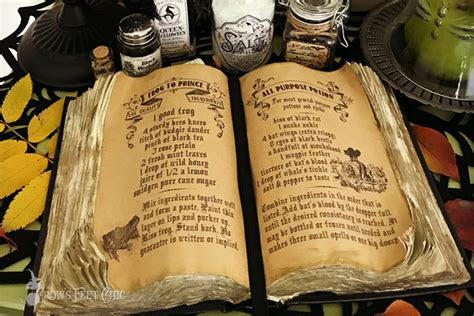 QUEEN
SALT
A FROG TO PRINCE
1 good frog
4 sturdy bees knees
titch of budgie dander
pinch of black tea
3 rose petals
2 fresh mint leaves
1 drop of wild honey
juice of 1/2 a lemon
smidgen pure cane sugar
Mix ingredients together well
and form a paste. Paint thin
layer on lips and pucker up.
Kiss frog. Stand back. No
guarantee is written or implied.
ALL PURPOSE POTION
For most general purpose
potions and spells.
hiss of black cat
1 snake ankle
4 bat wings (extra crispy)
8 drops of newt blood
a handfull of monkshood
1 magpie feather
tincture of bat's blood
1 drop of whale's tinkle
salt & pepper to taste
Combine ingredients in the order that is
listed. Add bat's blood by the dropper full
until the desired consistency is reached. May
be bottled or frozen until needed.
makes three small spells or one big doozy
CROWS FEET CHIC